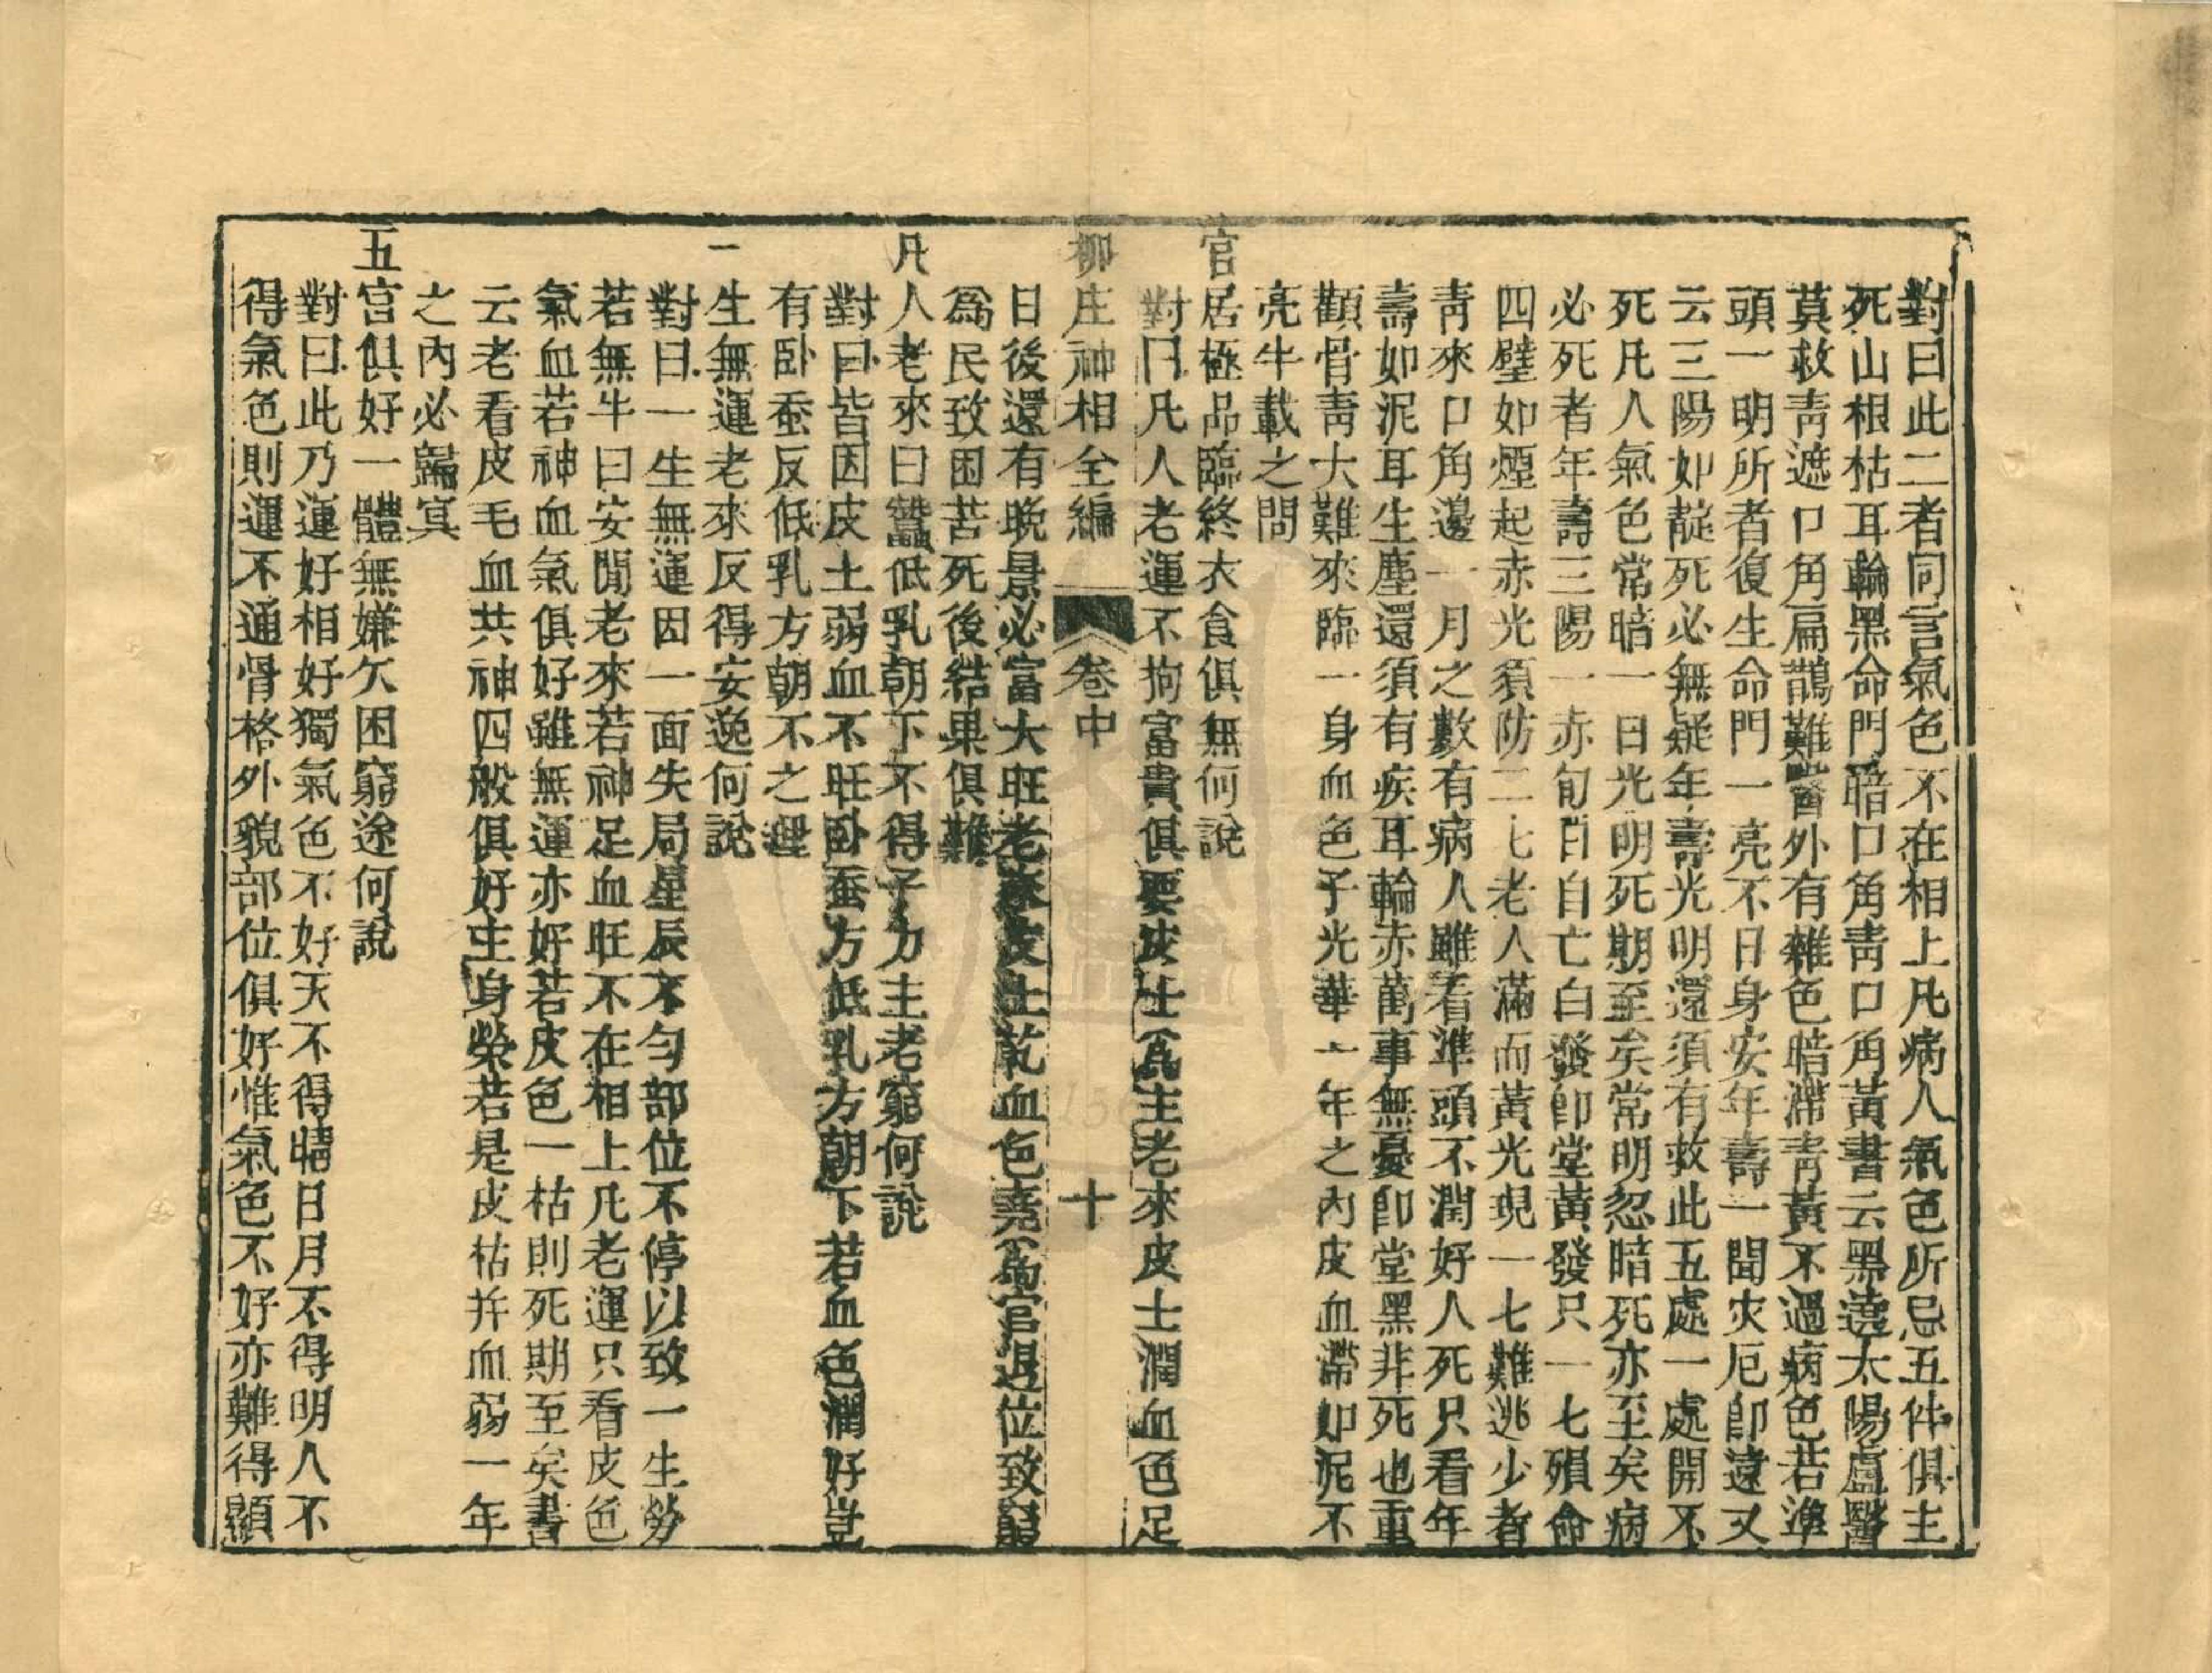 對曰此二者同言氣色不在相上凡病人氣色所忌五件俱主
死山根枯耳輪黑命門暗口角靑口角黃書云黑遶太陽盧醫
莫救靑遮口角扁鵲難醫外有雜色暗滯靑黃不過病色若準
頭一明所者復生命門一亮不日身安年壽一開灾厄卽遠又
云三陽如靛死必無疑年壽光明還須有救此五處一處開不
死凡人氣色常暗一日光明死期至矣常明忽暗死亦至矣病
必死者年壽三陽一赤旬日自亡白發卽堂黃發只一七殞命
四璧如煙起赤光須防二七老人滿面黃光現一七難逃少者
靑來口角邊一月之數有病人雖看準頭不潤好人死只看年
壽如泥耳生塵還須有疾耳輪赤萬事無憂卽堂黑非死也重
顴骨靑大難來臨一身血色子光華一年之內皮血滯如泥不
亮牛載之問
官居極品臨終衣食俱無何說
對曰凡人老運不拘富貴俱要皮士爲主老來皮士潤血色足
柳庄神相全編 卷中 十
日後還有晩景必富大旺老來皮土乾血色堯爲官退位致
爲民致困苦死後結果俱難
凡人老來曰蠶低乳朝下不得子力主老窮何說
對曰皆因皮土弱血不旺卧蚕方低乳方朝下若血色潤好豈
有卧蚕反低乳方朝不之理
一生無運老來反得安逸何說
對曰一生無運因一面失局星辰不勻部位不停以致一生勞
若無牛曰安閒老來若神足血旺不在相上凡老運只看皮色
氣血若神血氣俱好雖無運亦好若皮色一枯則死期至矣書
云老看皮毛血共神四般俱好主身榮若是皮枯并血弱一年
之內必歸冥
五官俱好一體無嫌欠困窮途何說
對曰此乃運好相好獨氣色不好天不得晴日月不得明人不
得氣色則運不通骨格外貌部位俱好惟氣色不好亦難得顯